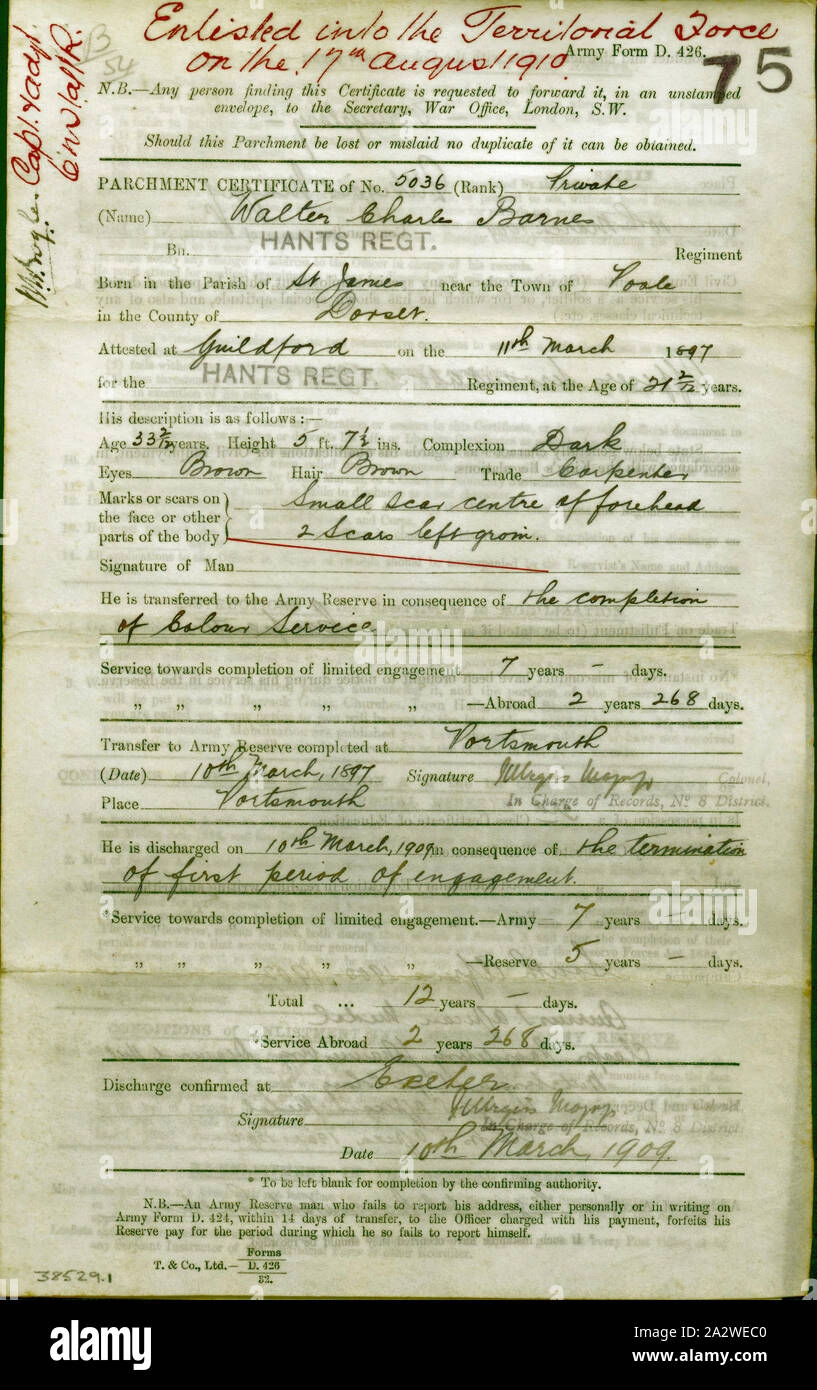 Enlisted into the Territorial Force
on the 17th August 1910
Capt & Adjt
Army Form D. 426.
75
B
54
N.B.—Any person finding this Certificate is requested to forward it, in an unstamped
envelope, to the Secretary, War Office, London, S.W.
Should this Parchment be lost or mislaid no duplicate of it can be obtained.
PARCHMENT CERTIFICATE of No. 5036 (Rank) Private
(Name) Walter Charles Barnes
Bn. HANTS REGT. Regiment
Born in the Parish of St James near the Town of Poole
in the County of Dorset.
Attested at Guildford on the 11th March 1897
for the HANTS REGT. Regiment, at the Age of 21 2/12 years.
His description is as follows :—
Age 33 2/12 years. Height 5 ft. 7½ ins. Complexion Dark
Eyes Brown Hair Brown Trade Carpenter
Marks or scars on Small scar centre of forehead
the face or other
parts of the body 2 Scars left groin.
Signature of Man
He is transferred to the Army Reserve in consequence of the completion
of Colour Service
Service towards completion of limited engagement 7 years – days.
„ „ „ „ „ —Abroad 2 years 268 days.
Transfer to Army Reserve completed at Portsmouth
(Date) 10th March, 1897 Signature Major Colonel,
Place Portsmouth In Charge of Records, No 8 District.
He is discharged on 10th March, 1909 in consequence of the termination
of first period of engagement.
*Service towards completion of limited engagement.—Army 7 years – days.
„ „ „ „ „ —Reserve 5 years – days.
Total ... 12 years – days.
*Service Abroad 2 years 268 days.
Discharge confirmed at Exeter.
Signature Major
In Charge of Records, No 8 District
Date 10th March, 1909.
* To be left blank for completion by the confirming authority.
N.B.—An Army Reserve man who fails to report his address, either personally or in writing on
Army Form D. 424, within 14 days of transfer, to the Officer charged with his payment, forfeits his
Reserve pay for the period during which he so fails to report himself.
T. & Co., Ltd.— Forms
D. 426
32.
38529.1
alamy
Image ID: 2A2WEC0
www.alamy.com